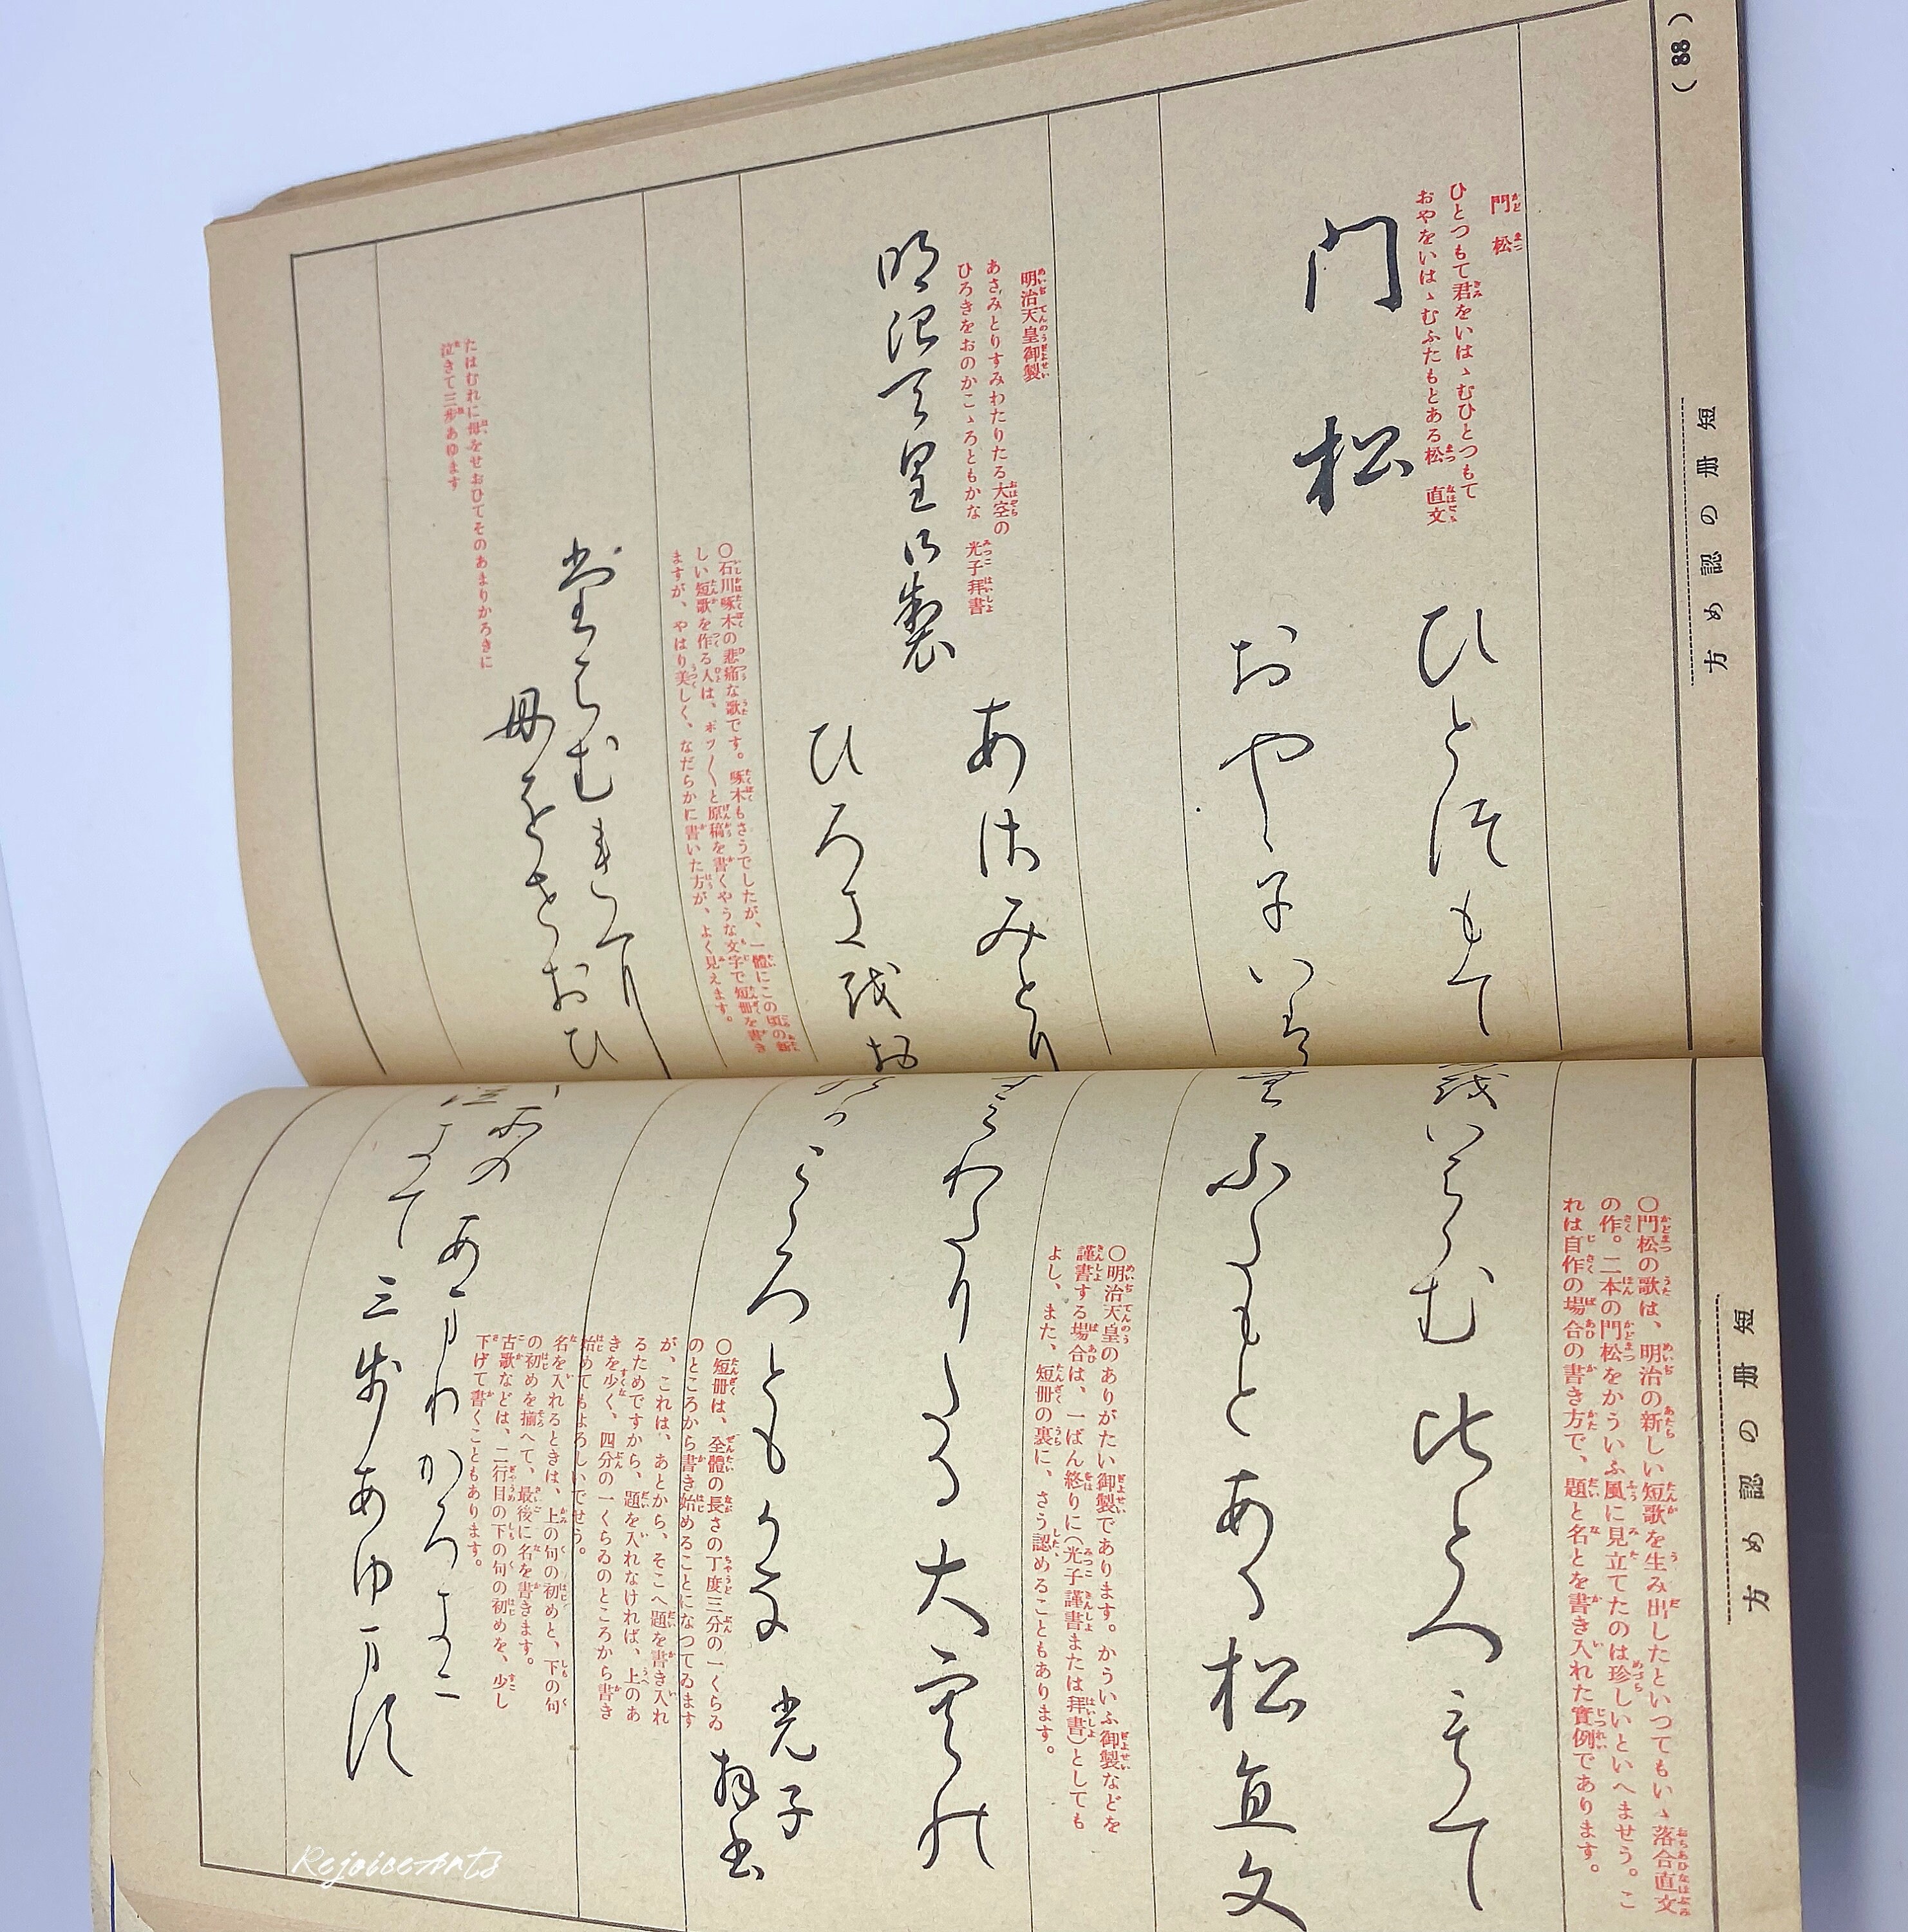 (88)
短冊の認め方
門松
ひとつもて君をいはゝむひとつもて
おやをいはゝむふたもとある松 直文
門松
ひとつもて
おや
明治天皇御製
あさみとりすみわたりたる大空の
ひろきをおのかこゝろともかな 光子拝書
明治天皇御製
あさみとり
ひろきをお
〇石川啄木の悲痛な歌です。啄木もさうでしたが、一體にこの頃の新
しい短歌を作る人は、ポツ〳〵と原稿を書くやうな文字で短冊を書き
ますが、やはり美しく、なだらかに書いた方が、よく見えます。
たはむれに
母をせおひ
たはむれに母をせおひてそのあまりかろきに
泣きて三歩あゆます
短冊の認め方
〇門松の歌は、明治の新しい短歌を生み出したといつてもいゝ落合直文
の作。二本の門松をかういふ風に見立てたのは珍しいといへませう。こ
れは自作の場合の書き方で、題と名とを書き入れた實例であります。
をいはゝむひとつもて
むふたもとある松 直文
〇明治天皇のありがたい御製であります。かういふ御製などを
謹書する場合は、一ばん終りに(光子謹書または拝書)としても
よし、また、短冊の裏に、さう認めることもあります。
すみわたりたる大空の
のかこゝろともかな 光子拝書
〇短冊は、全體の長さの丁度三分の一くらゐ
のところから書き始めることになつてゐます
が、これは、あとから、そこへ題を書き入れ
るためですから、題を入れなければ、上のあ
きを少く、四分の一くらゐのところから書き
始めてもよろしいでせう。
名を入れるときは、上の句の初めと、下の句
の初めを揃へて、最後に名を書きます。
古歌などは、二行目の下の句の初めを、少し
下げて書くこともあります。
てその あまりかろきに
泣きて 三歩あゆます
RejoiceArts